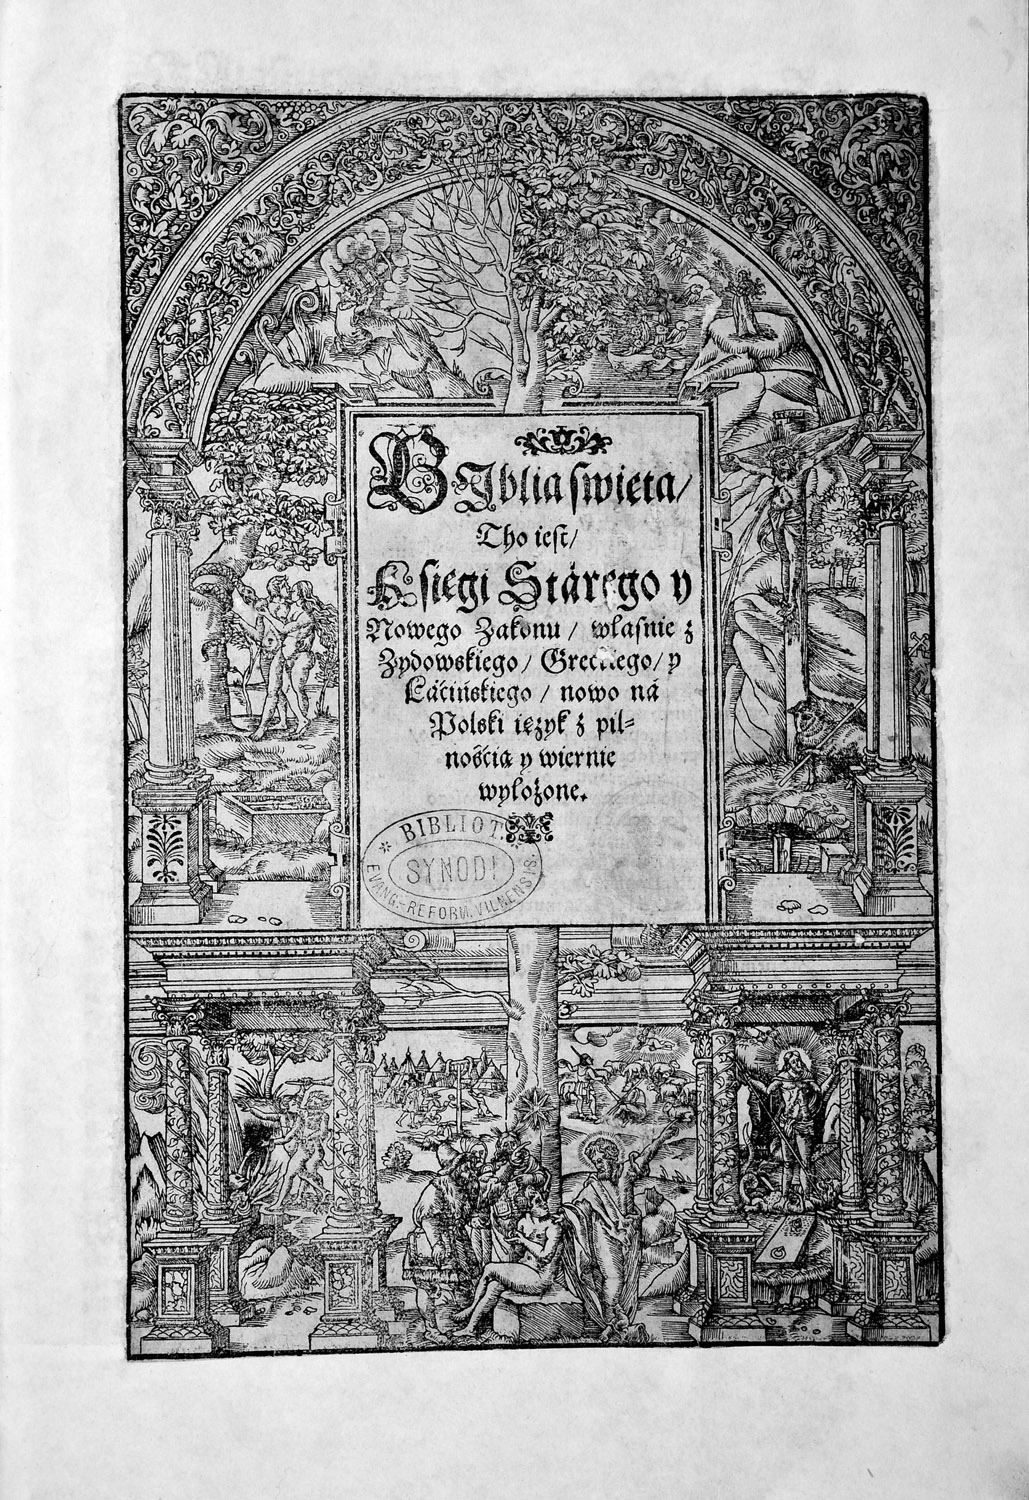 BIblia swięta/
Tho iest/
Księgi Stárego y
Nowego Zakonu/ własnie z
Zydowskiego/ Greckiego/ y
Láćińskiego/ nowo ná
Polski ięzyk z pil=
nośćią y wiernie
wyłożone.
* BIBLIOT. *
SYNODI
EVANG.-REFORM. VILNENSIS.